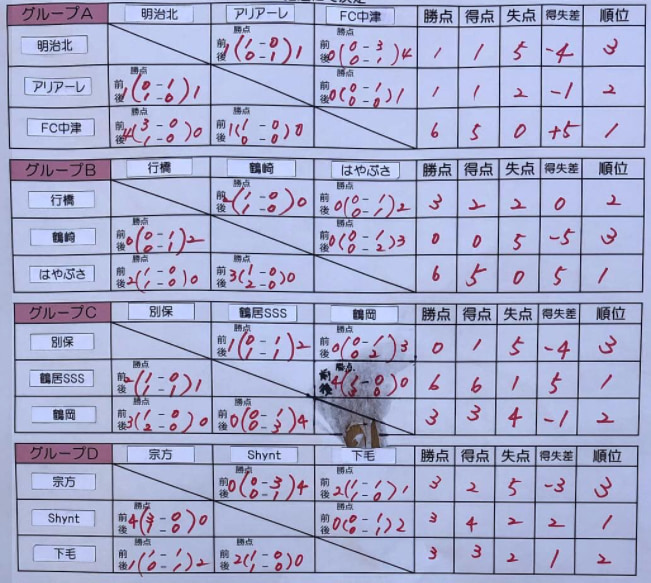 グループA 明治北 アリアーレ FC中津 勝点 得点 失点 得失差 順位
明治北 勝点 前後 1(1-0 0-1)1 勝点 前後 0(0-3 0-1)4 1 1 5 -4 3
アリアーレ 勝点 前後 1(0-1 1-0)1 勝点 前後 0(0-1 0-0)1 1 1 2 -1 2
FC中津 勝点 前後 4(3-0 1-0)0 勝点 前後 1(1-0 0-0)0 6 5 0 +5 1
グループB 行橋 鶴崎 はやぶさ 勝点 得点 失点 得失差 順位
行橋 勝点 前後 2(1-0 1-0)0 勝点 前後 0(0-1 0-1)2 3 2 2 0 2
鶴崎 勝点 前後 0(0-1 0-1)2 勝点 前後 0(0-1 0-2)3 0 0 5 -5 3
はやぶさ 勝点 前後 2(1-0 1-0)0 勝点 前後 3(1-0 2-0)0 6 5 0 5 1
グループC 別保 鶴居SSS 鶴岡 勝点 得点 失点 得失差 順位
別保 勝点 前後 1(0-1 1-1)2 勝点 前後 0(0-1 0-2)3 0 1 5 -4 3
鶴居SSS 勝点 前後 2(1-0 1-1)1 勝点 前後 4(1-0 3-0)0 6 6 1 5 1
鶴岡 勝点 前後 3(1-0 2-0)0 勝点 前後 0(0-1 0-3)4 3 3 4 -1 2
グループD 宗方 Shynt 下毛 勝点 得点 失点 得失差 順位
宗方 勝点 前後 0(0-3 0-1)4 勝点 前後 2(1-1 1-0)1 3 2 5 -3 3
Shynt 勝点 前後 4(3-0 1-0)0 勝点 前後 0(0-1 0-1)2 3 4 2 2 1
下毛 勝点 前後 1(1-1 0-1)2 勝点 前後 2(1-0 1-0)0 3 3 2 1 2